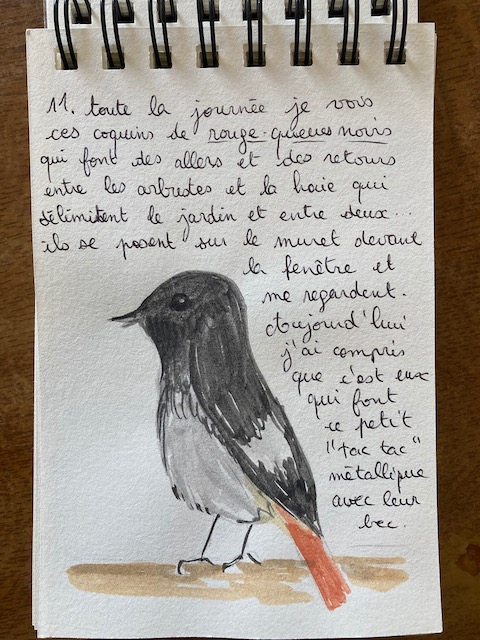 11. toute la journée je vois
ces coquins de rouge-queues noirs
qui font des allers et des retours
entre les arbustes et la haie qui
délimitent le jardin et entre deux...
ils se posent sur le muret devant
la fenêtre et
me regardent.
Aujourd'hui
j'ai compris
que c'est eux
qui font
ce petit
"tac tac"
métallique
avec leur
bec.